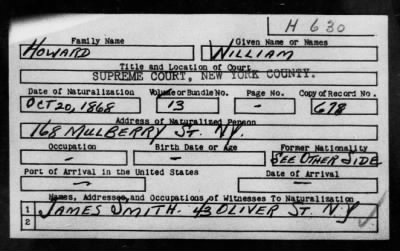 H 630
Family Name Given Name or Names
HOWARD WILLIAM
Title and Location of Court
SUPREME COURT, NEW YORK COUNTY.
Date of Naturalization Volume or Bundle No. Page No. Copy of Record No.
OCT 20, 1868 13 - 678
Address of Naturalized Person
168 MULBERRY ST. NY.
Occupation Birth Date or Age Former Nationality
- - SEE OTHER SIDE
Port of Arrival in the United States Date of Arrival
- -
Names, Addresses and Occupations of Witnesses To Naturalization
1 JAMES SMITH. 43 OLIVER ST. N.Y
2